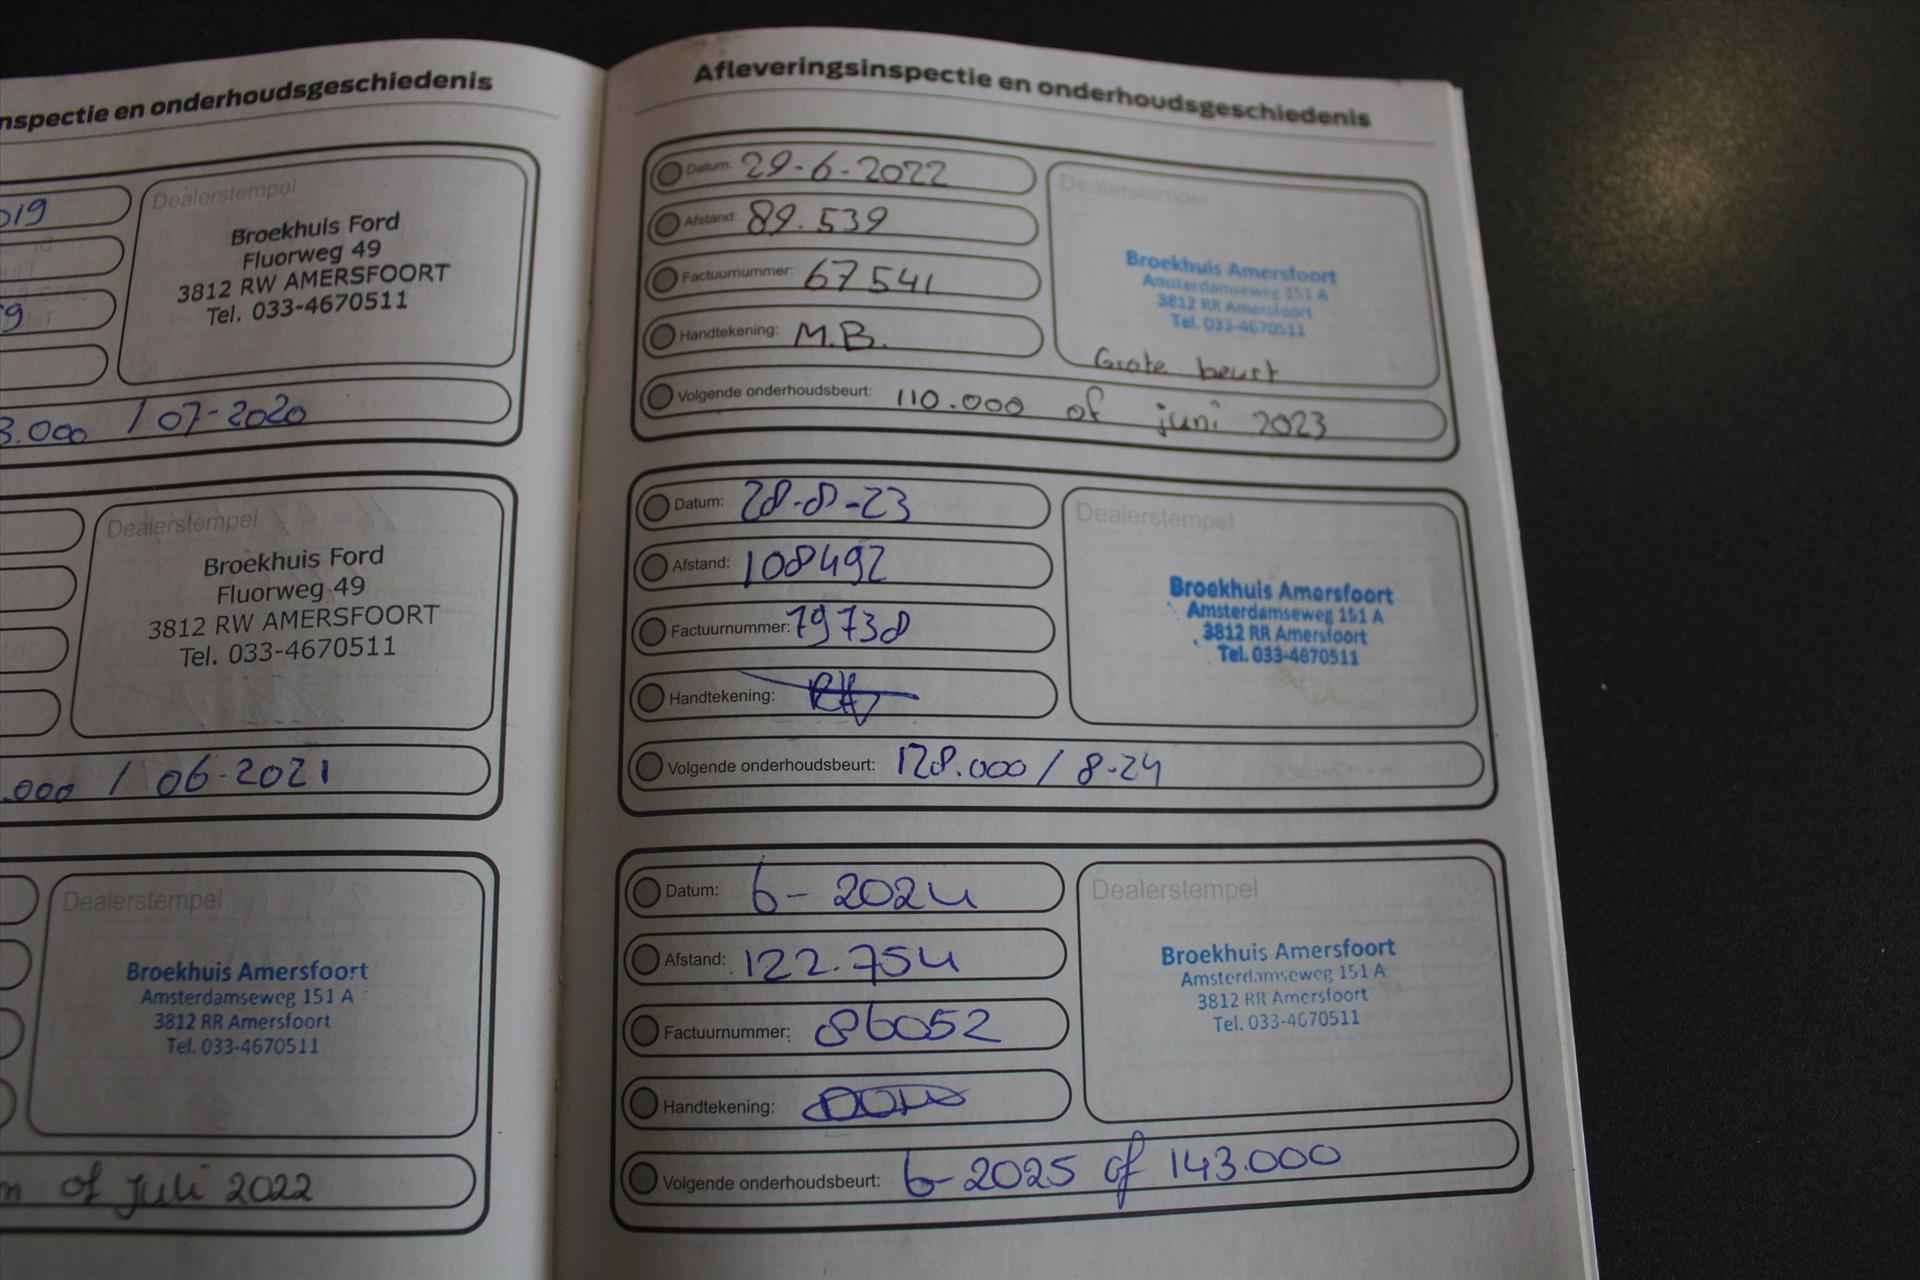 nspectie en onderhoudsgeschiedenis
019
Dealerstempel
Broekhuis Ford
Fluorweg 49
3812 RW AMERSFOORT
Tel. 033-4670511
9
3.000 / 07-2020
Dealerstempel
Broekhuis Ford
Fluorweg 49
3812 RW AMERSFOORT
Tel. 033-4670511
.000 / 06-2021
Dealerstempel
Broekhuis Amersfoort
Amsterdamseweg 151 A
3812 RR Amersfoort
Tel. 033-4670511
m of juli 2022
Afleveringsinspectie en onderhoudsgeschiedenis
Datum: 29-6-2022
Afstand: 89.539
Factuurnummer: 67541
Handtekening: M.B.
Dealerstempel
Broekhuis Amersfoort
Amsterdamseweg 151 A
3812 RR Amersfoort
Tel. 033-4670511
Grote beurt
Volgende onderhoudsbeurt: 110.000 of juni 2023
Datum: 28-8-23
Afstand: 108492
Factuurnummer: 79738
Handtekening:
Dealerstempel
Broekhuis Amersfoort
Amsterdamseweg 151 A
3812 RR Amersfoort
Tel. 033-4670511
Volgende onderhoudsbeurt: 128.000 / 8-24
Datum: 6-2024
Afstand: 122.754
Factuurnummer: 86052
Handtekening:
Dealerstempel
Broekhuis Amersfoort
Amsterdamseweg 151 A
3812 RR Amersfoort
Tel. 033-4670511
Volgende onderhoudsbeurt: 6-2025 of 143.000